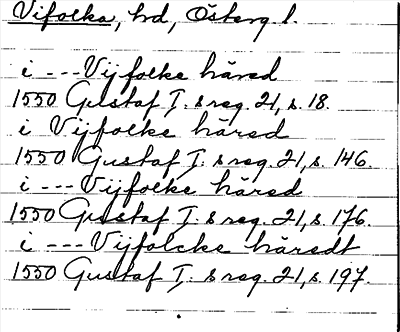 Vifolka, hd, Österg l.
i --- Vijfolke häred
1550 Gustaf I:s reg. 21, s. 18.
i Vijfolke härad
1550 Gustaf I:s reg. 21, s. 146.
i --- Vijfolke häred
1550 Gustaf I:s reg. 21, s. 176.
i --- Vijfolcke häredt
1550 Gustaf I:s reg. 21, s. 197.